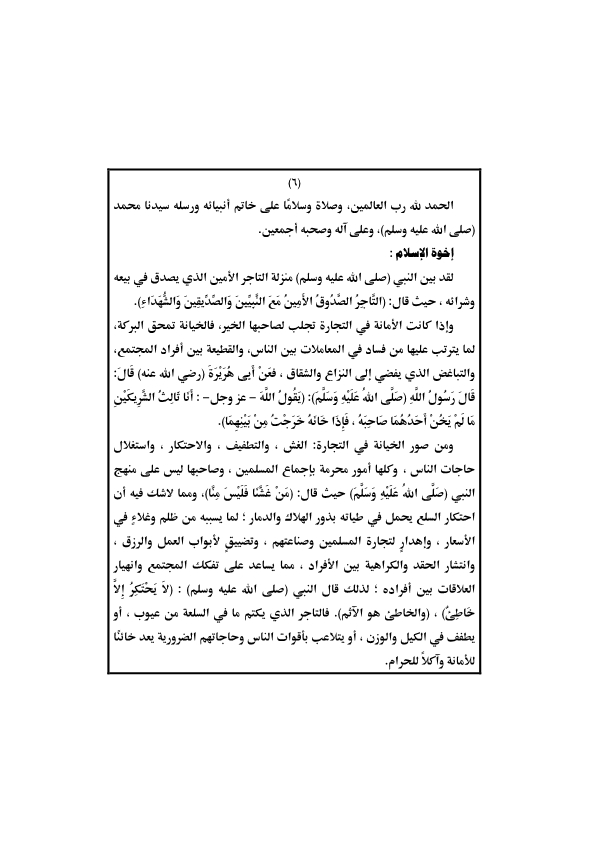 (٦)
الحمد لله رب العالمين، وصلاة وسلامًا على خاتم أنبيائه ورسله سيدنا محمد
(صلى الله عليه وسلم)، وعلى آله وصحبه أجمعين.
إخوة الإسلام :
لقد بين النبي (صلى الله عليه وسلم) منزلة التاجر الأمين الذي يصدق في بيعه
وشرائه ، حيث قال: (التَّاجِرُ الصَّدُوقُ الأَمِينُ مَعَ النَّبِيِّينَ وَالصِّدِّيقِينَ وَالشُّهَدَاءِ).
وإذا كانت الأمانة في التجارة تجلب لصاحبها الخير، فالخيانة تمحق البركة،
لما يترتب عليها من فساد في المعاملات بين الناس، والقطيعة بين أفراد المجتمع،
والتباغض الذي يفضي إلى النزاع والشقاق ، فعَنْ أَبِي هُرَيْرَةَ (رضي الله عنه) قَالَ:
قَالَ رَسُولُ اللَّهِ (صَلَّى اللهُ عَلَيْهِ وَسَلَّمَ): (يَقُولُ اللَّهَ – عز وجل- : أَنَا ثَالِثُ الشَّرِيكَيْنِ
مَا لَمْ يَخُنْ أَحَدُهُمَا صَاحِبَهُ ، فَإِذَا خَانَهُ خَرَجْتُ مِنْ بَيْنِهِمَا).
ومن صور الخيانة في التجارة: الغش ، والتطفيف ، والاحتكار ، واستغلال
حاجات الناس ، وكلها أمور محرمة بإجماع المسلمين ، وصاحبها ليس على منهج
النبي (صَلَّى اللهُ عَلَيْهِ وَسَلَّمَ) حيث قال: (مَنْ غَشَّنَا فَلَيْسَ مِنَّا)، ومما لاشك فيه أن
احتكار السلع يحمل في طياته بذور الهلاك والدمار ؛ لما يسببه من ظلم وغلاءٍ في
الأسعار ، وإهدارٍ لتجارة المسلمين وصناعتهم ، وتضييقٍ لأبواب العمل والرزق ،
وانتشار الحقد والكراهية بين الأفراد ، مما يساعد على تفكك المجتمع وانهيار
العلاقات بين أفراده ؛ لذلك قال النبي (صلى الله عليه وسلم) : (لاَ يَحْتَكِرُ إِلاَّ
خَاطِئٌ) ، (والخاطئ هو الآثم). فالتاجر الذي يكتم ما في السلعة من عيوب ، أو
يطفف في الكيل والوزن ، أو يتلاعب بأقوات الناس وحاجاتهم الضرورية يعد خائنًا
للأمانة وآكلاً للحرام.